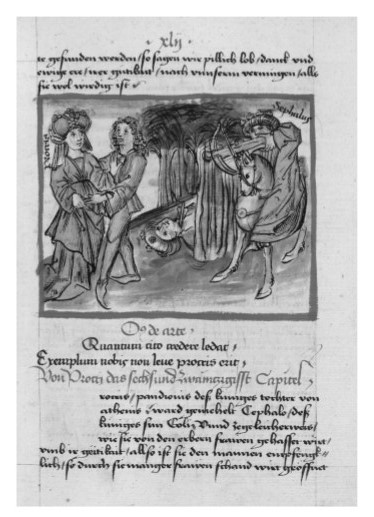 xlij
te gefunden werden / so sagen wir pillich lob / danck vnd
ewige ere / irer gütikait / nach vnnserm vermügen / alls
sie wol wirdig ist
Procris
Cephalus
de arte
Quantum cito credere ledat
Exemplum vobis non leue procris erit
Von Procri das sechsundzwaintzigisst Capitel
rocris / pandionis deß küniges tochter von
athenis / ward gemehelt Cephalo / deß
küniges sun Coli Vnnd zegeleicherweis /
wie sie von den erbern frawen gehasset wirt /
vmb ir geitikait / allso ist sie den mannen
lich / so durch sie manger frawen schand wirt geoffnet